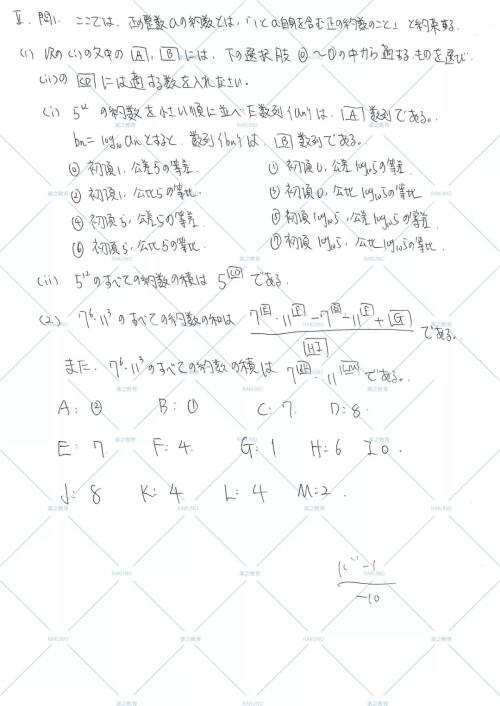 Ⅱ. 問1. ここでは、正の整数aの約数とは、「1とa自身を含む正の約数のこと」と約束する.
(1) 次の(i)の文中の A , B には、下の選択肢⓪~⑦の中から適するものを選び、
(ii)の CD には適する数を入れなさい.
(i) 5¹²の約数を小さい順に並べた数列{an}は、 A 数列である.
bn=log₁₀anとすると、数列{bn}は、 B 数列である.
⓪ 初項1, 公差5の等差. ① 初項0, 公差log₁₀5の等差
② 初項1, 公比5の等比. ③ 初項0, 公比log₁₀5の等比
④ 初項5, 公差5の等差. ⑤ 初項log₁₀5, 公差log₁₀5の等差
⑥ 初項5, 公比5の等比. ⑦ 初項log₁₀5, 公比log₁₀5の等比.
(ii) 5¹²のすべての約数の積は 5^CD である.
(2) 7⁶·11³のすべての約数の和は (7^E·11^F-7^E-11^F+G)/HI である。
また、7⁶·11³のすべての約数の積は 7^JK·11^LM である。
A: ② B: ① C: 7. D: 8.
E: 7. F: 4. G: 1 H: 6 I 0.
J: 8 K: 4 L: 4 M: 2.
-10
楽之教育
RAKUNO